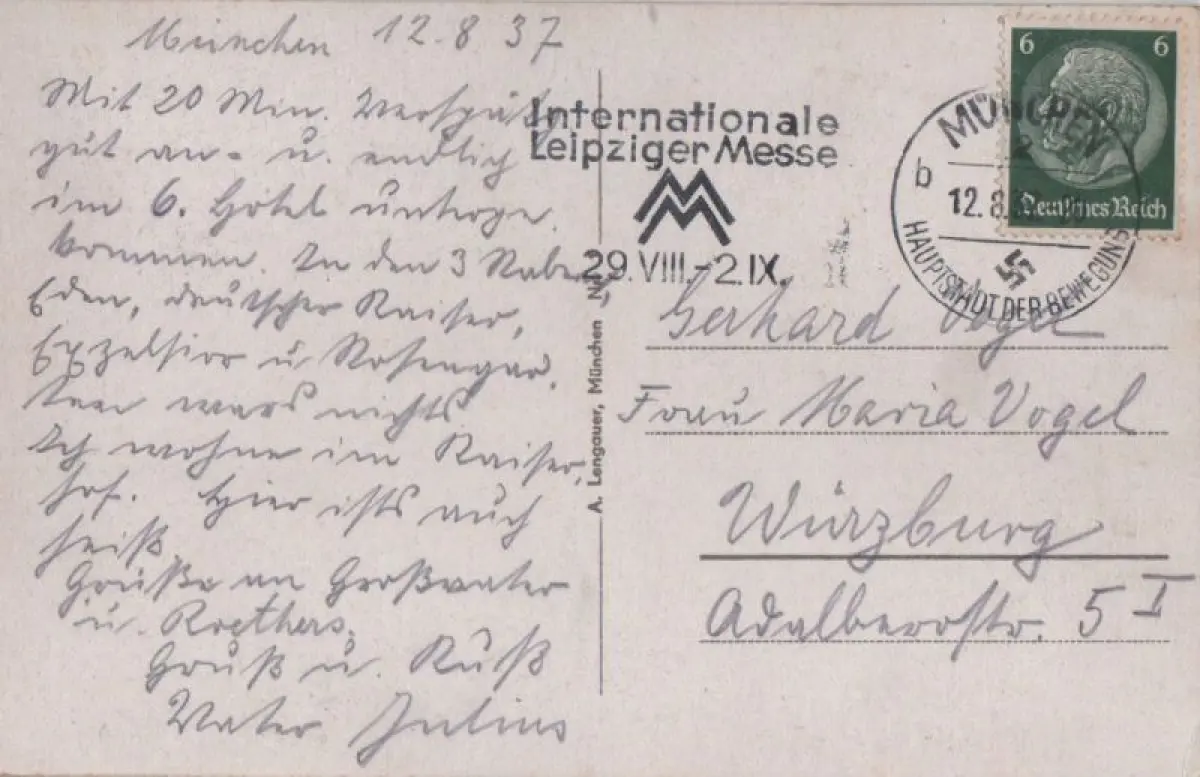 München 12.8.37
Mit 20 Min. Verspät.
gut an- u. endlich
im 6. Hotel unterge-
kommen. In den 3 Raben,
Eden, deutscher Kaiser,
Exzelsior u Rosengar-
ten wars nichts
Ich wohne im Kaiser-
hof. Hier ists auch
heiß
Grüße an Großvater
u. Roethers.
Gruß u. Kuß
Vater Julius
A. Lengauer, München
Internationale
Leipziger Messe
29.VIII.-2.IX.
6 6
Deutsches Reich
MÜNCHEN
b
12.8.
HAUPTSTADT DER BEWEGUNG
Gerhard Vogel
Frau Maria Vogel
Würzburg
Adalberostr. 5 I